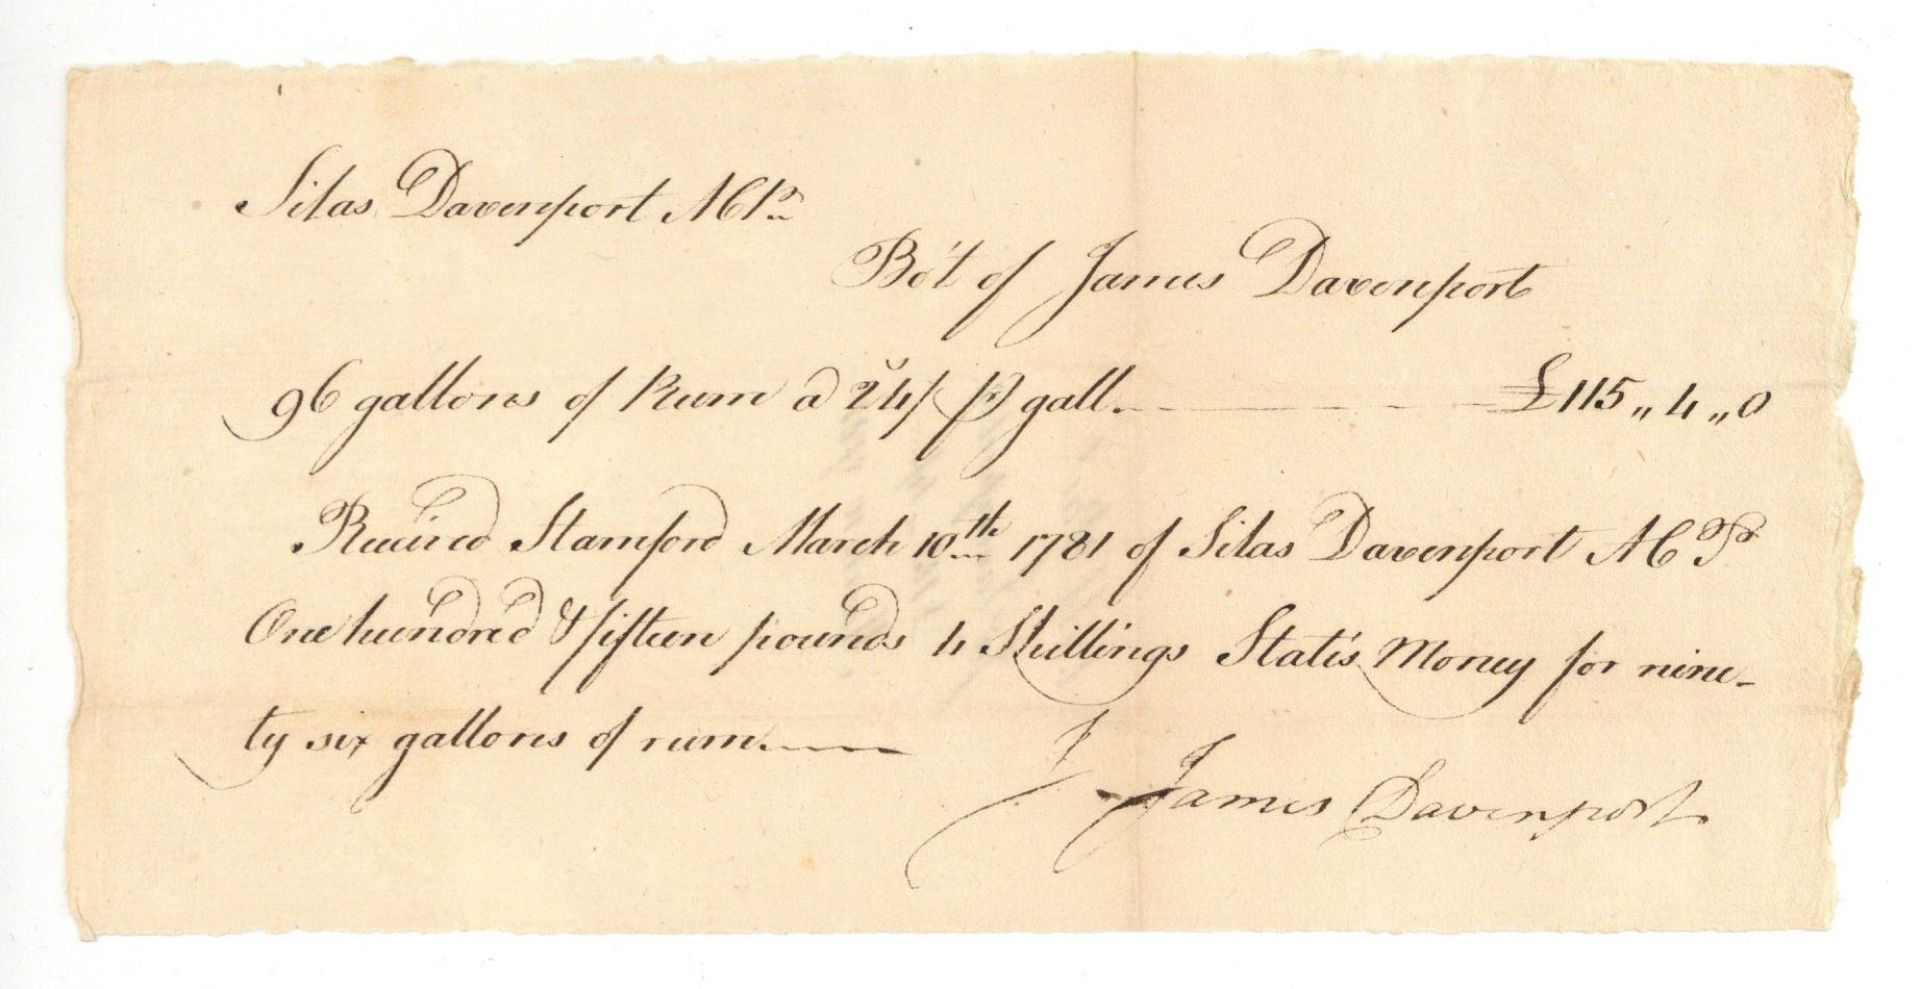 Silas Davenport ACPr
Bo't of James Davenport
96 gallons of Rum a 24/ ⅌ gall. £115 ,, 4 ,, 0
Received Stamford March 10th 1781 of Silas Davenport ACPr
One hundred & fifteen pounds 4 Shillings State's Money for nine-
ty six gallons of rum.
James Davenport